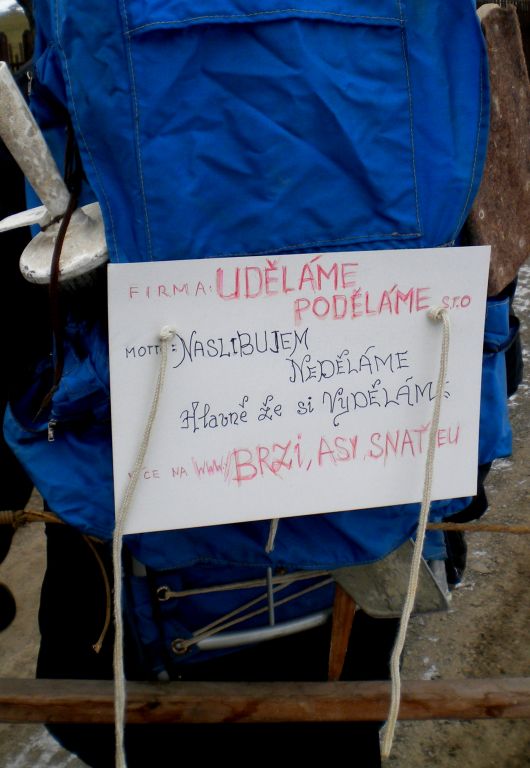 FIRMA: UDĚLÁME
PODĚLÁME s.r.o
MOTTO: NASLIBUJEM
NEDĚLÁME
Hlavně že si VYDĚLÁM
VÍCE NA WWW BRZI, ASY, SNAŤ, EU